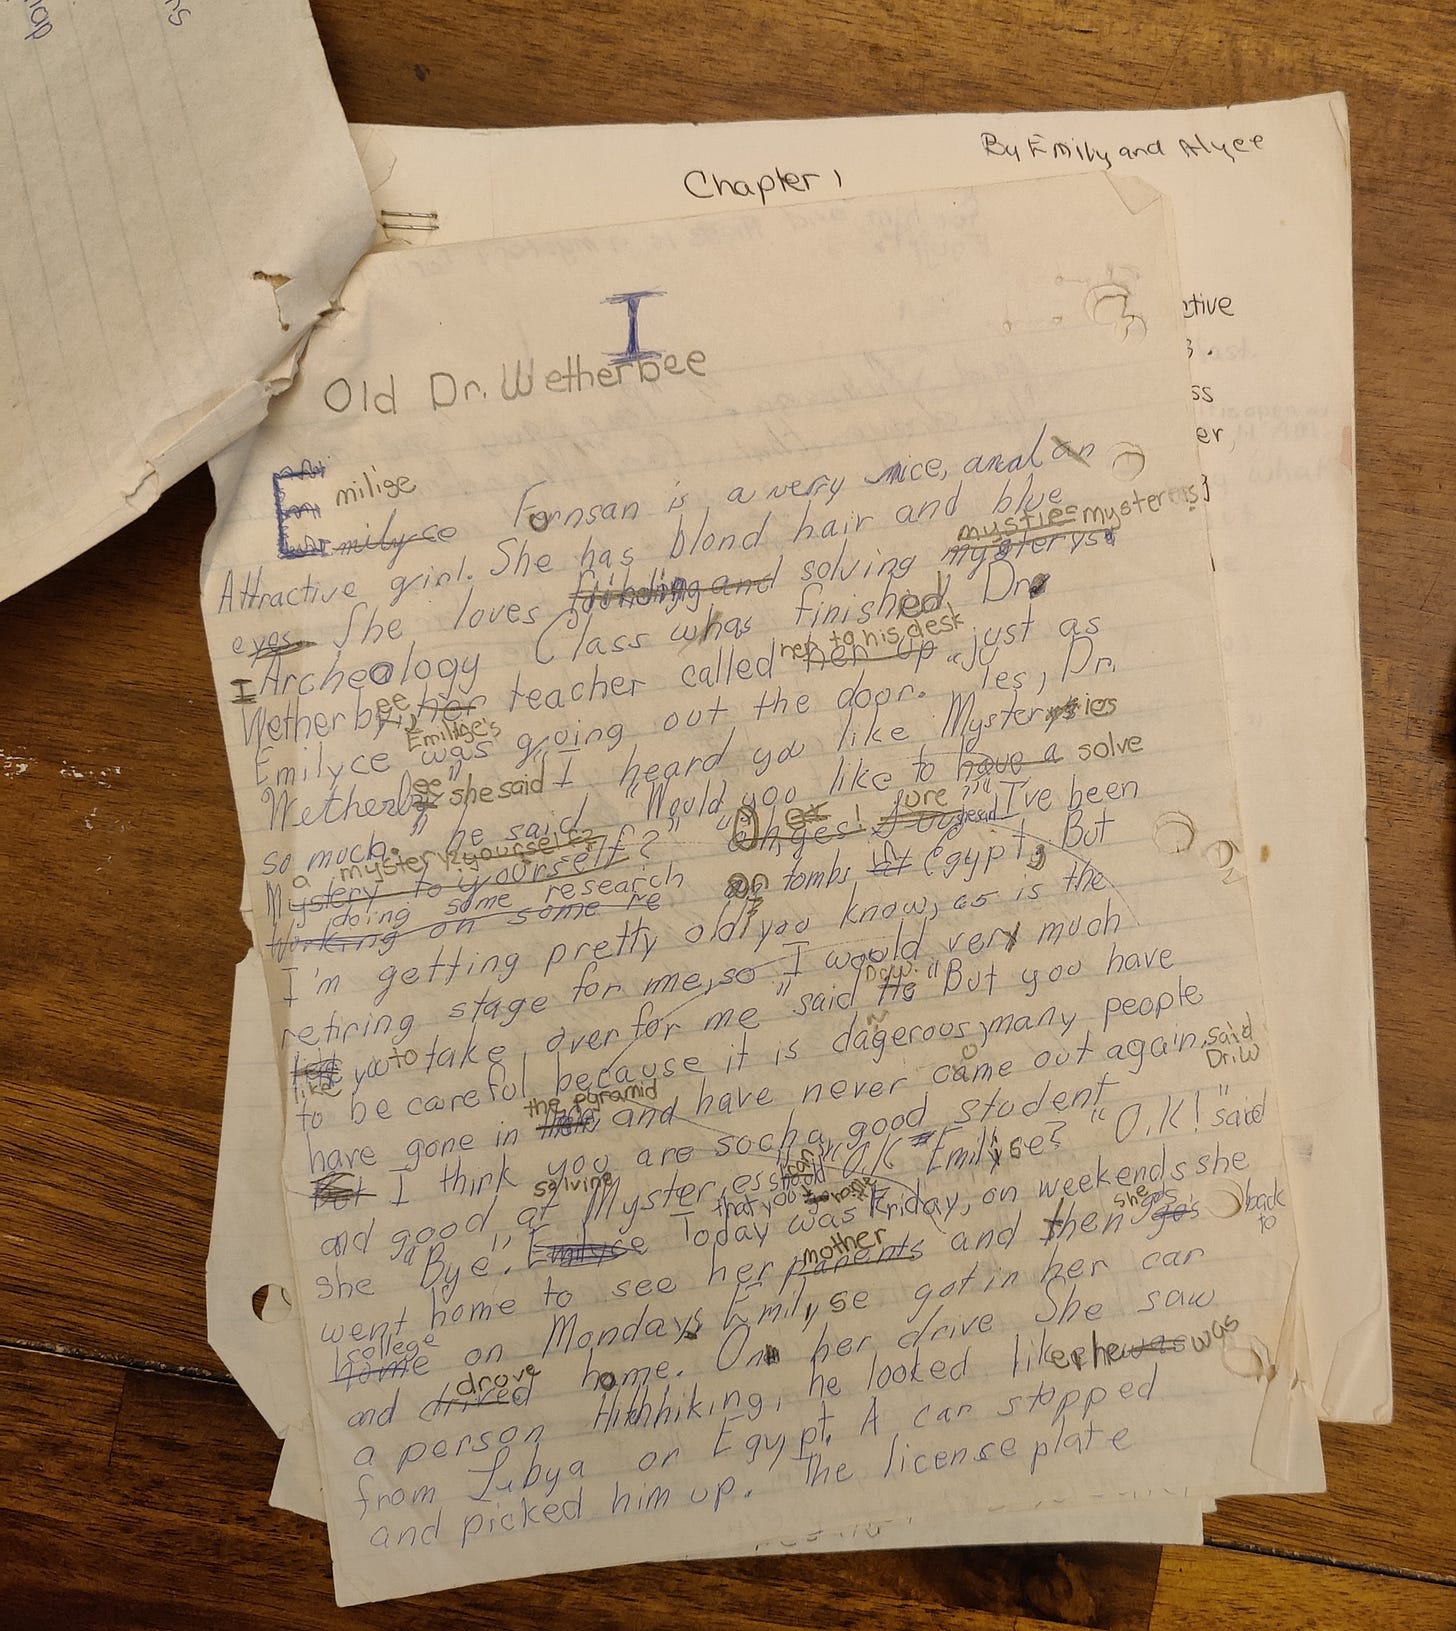 By Emily and Alyce
Chapter 1
I
Old Dr. Wetherbee
Emilige
Emilyce Fornsan is a very nice, and an
Attractive girl. She has blond hair and blue
mysties mysteries
eyes. She loves finding and solving mysterys.
Archeology Class whas finished Dr.
her to his desk
Wetherbee, her teacher called her up just as
Emilige's
Emilyce was going out the door. "Yes, Dr.
Wetherbee" she said "I heard you like Mysteries
so much." he said "Would you like to have a solve
a mystery yourself?
Mystery to yourself?" "Oh, yes! Sure" I've been
doing some research
working on some re on tombs at in Egypt. But
I'm getting pretty old, you know, as is the
retiring stage for me, so I would very much
like you to take over for me" said He Dr.W. "But you have
to be careful because it is dagerous, many people
the pyramid
have gone in and have never came out again, said Dr.W
But I think you are such a good student
and good at solving Mysteries that you should O.K Emilyse? "O.K!" said
she "Bye". Emilyce Today was Friday, on weekends she
mother
went home to see her parents and then she gos back to
college
home on Mondays Emilyse got in her car
drove
and drived home. On her drive She saw
a person Hithhiking, he looked like he was was
from Lybya or Egypt. A car stopped
and picked him up. The license plate
ctive
3.
ss
er,